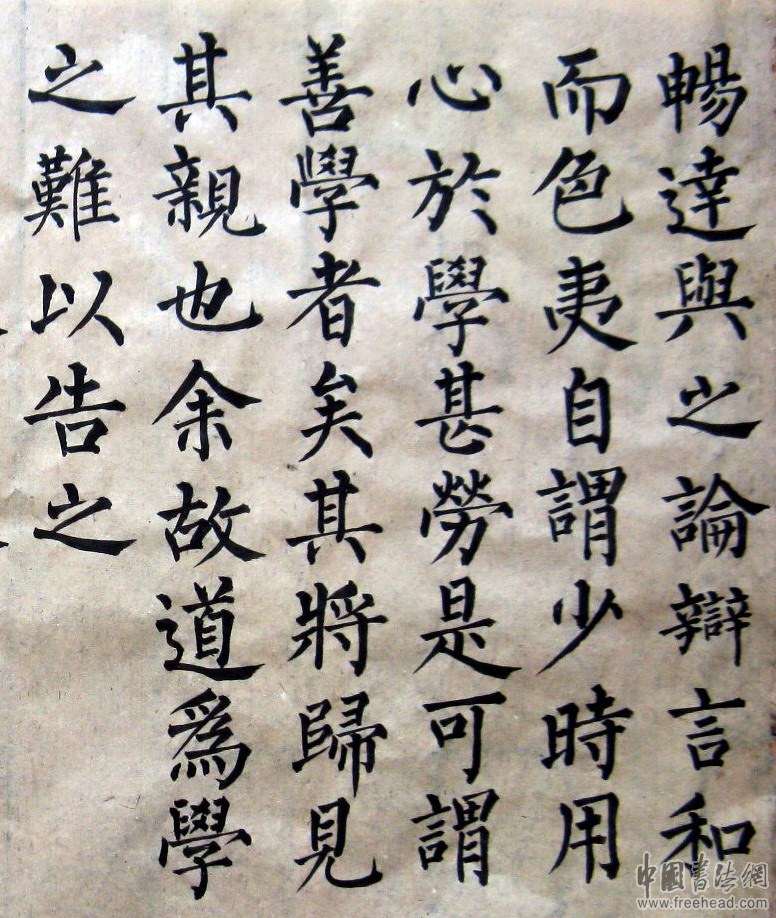 暢達與之論辯言和
而色夷自謂少時用
心於學甚勞是可謂
善學者矣其將歸見
其親也余故道為學
之難以告之
中國書法網
www.freehead.com